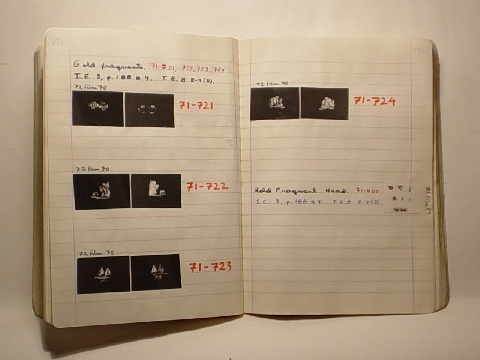 Gold fragments. 71-721, -722, 723, 724
I.E. 3, p. 188 # 4. T.E. B E-4 (2).
72 film 70
71-721
72 film 70
71-722
72 film 70
71-723
72 film 70
71-724
Gold Fragment. Head. 71-400
I.E. 3, p. 188 # 4 T.E.B E-4 (2).